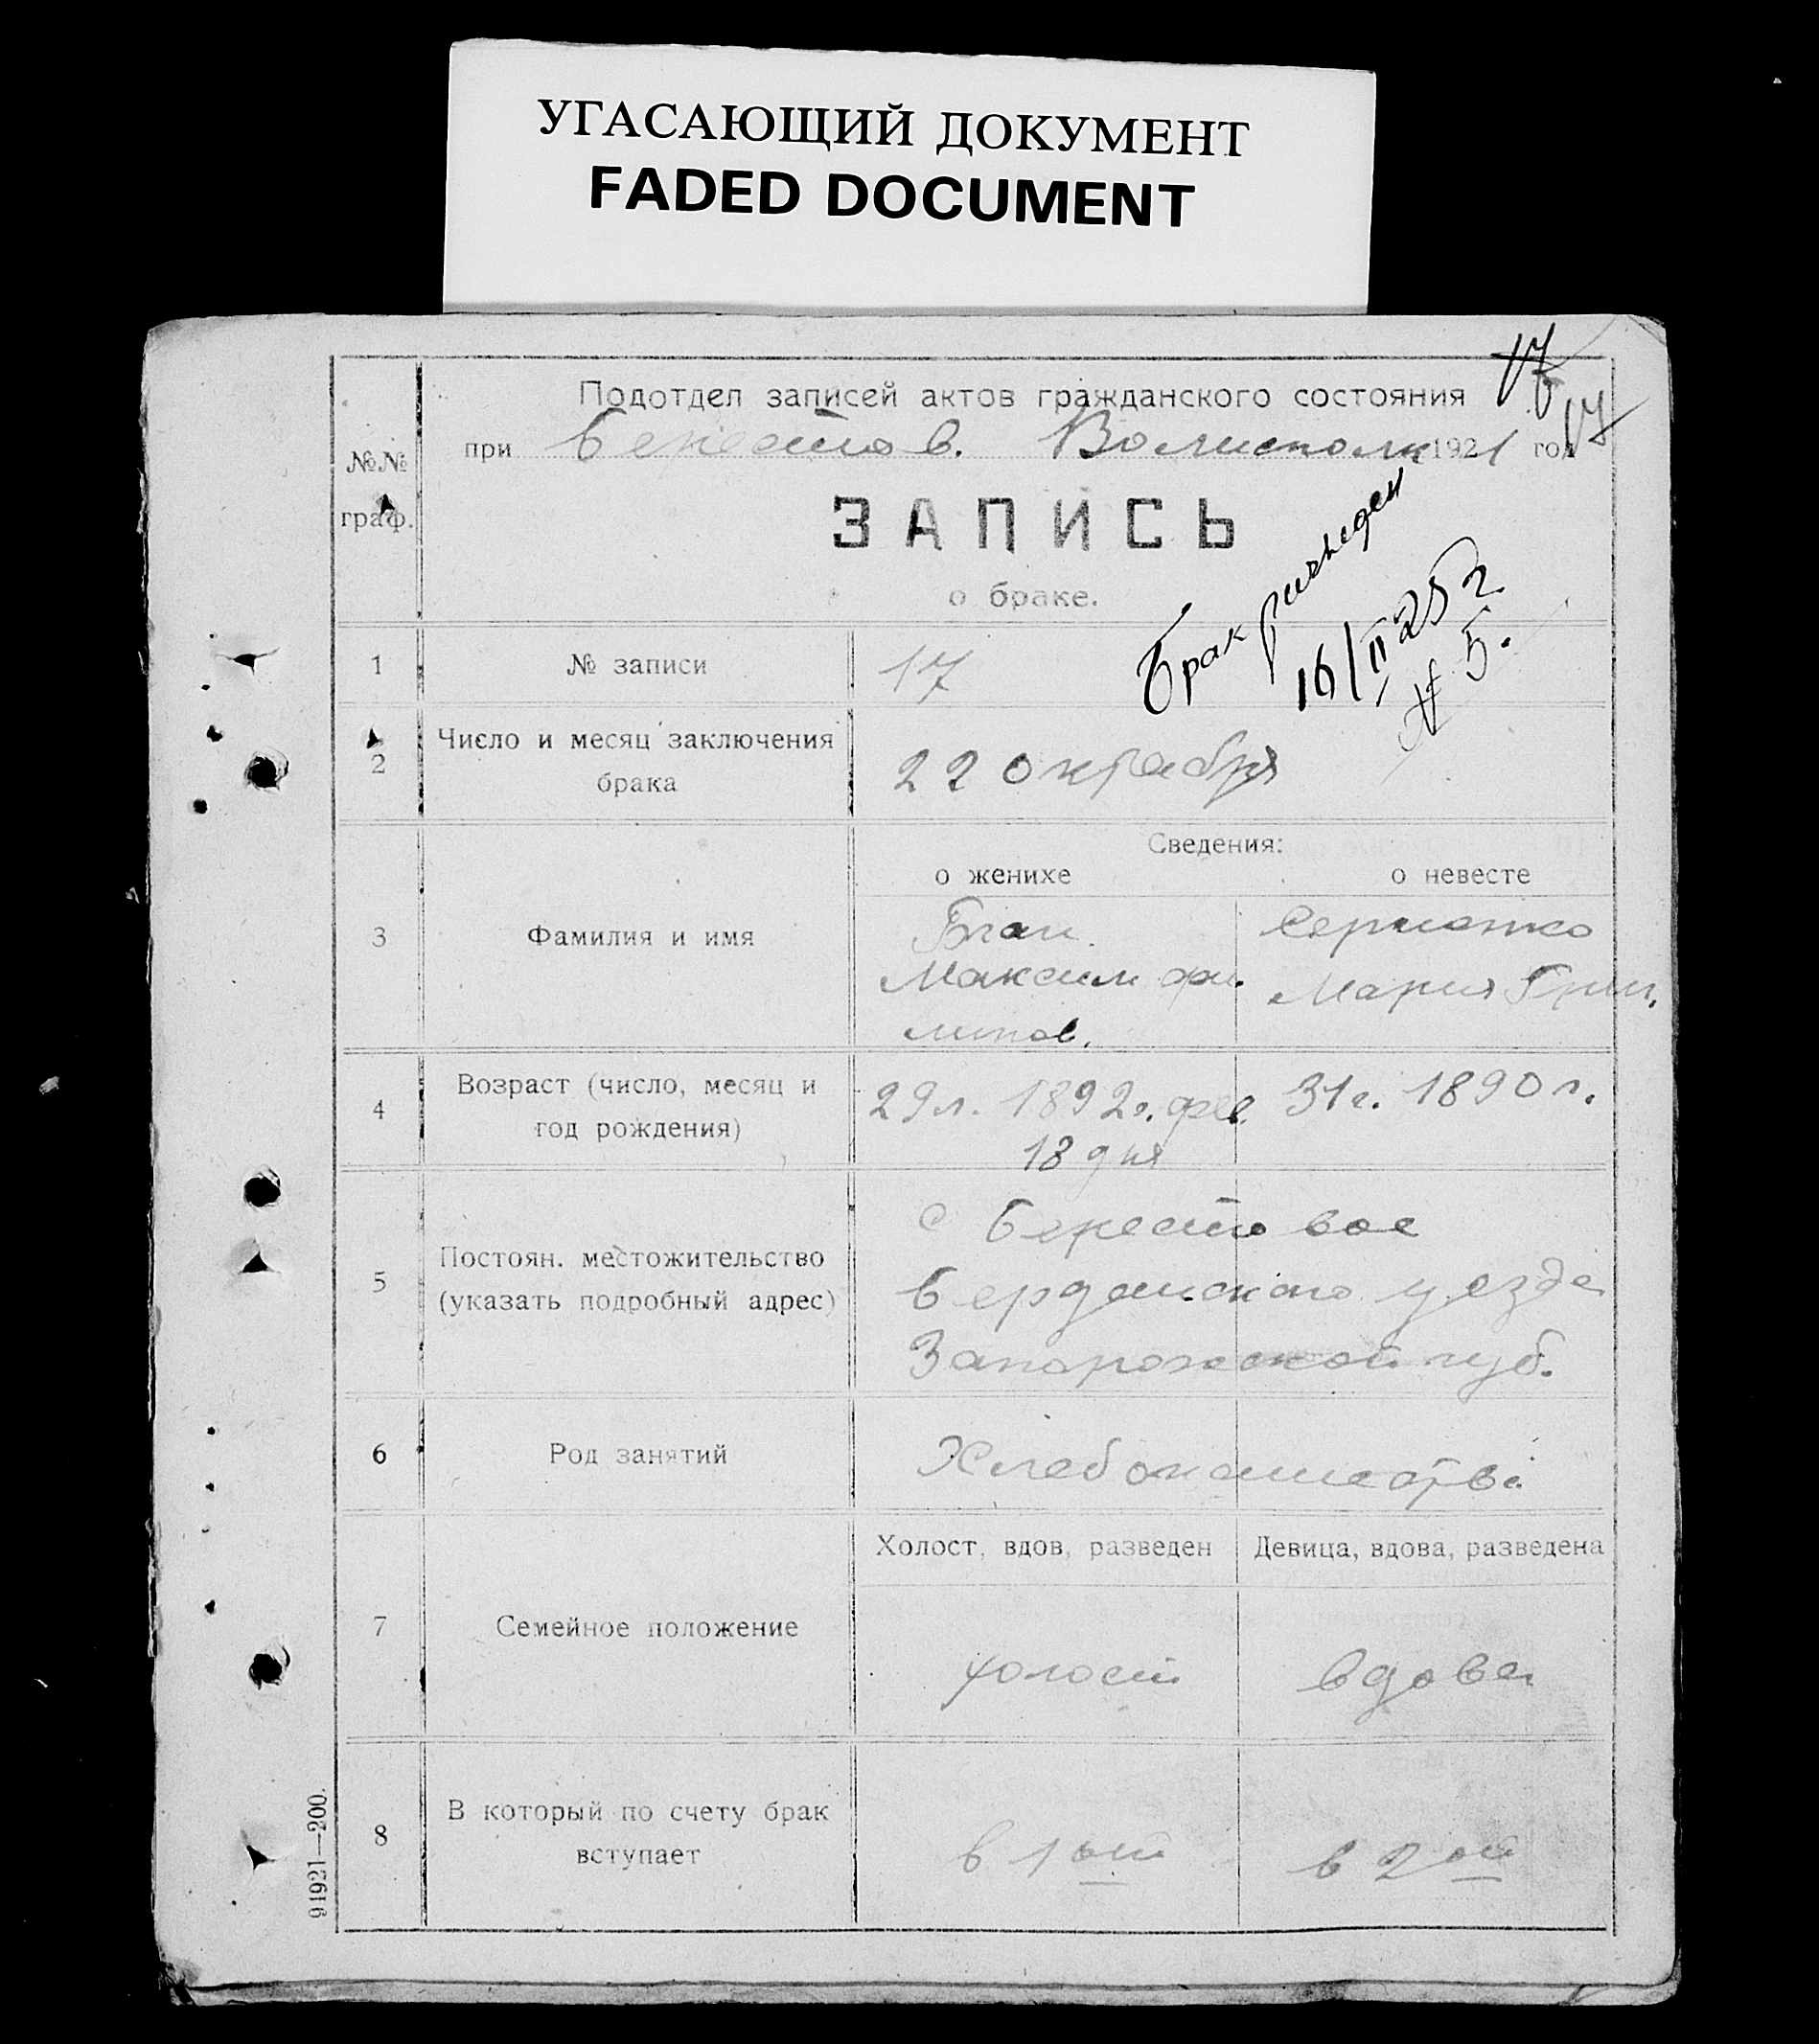 УГАСАЮЩИЙ ДОКУМЕНТ
FADED DOCUMENT
17
17
Подотдел записей актов гражданского состояния
при Берестов. Волисполк 1921 год
№№ граф.
ЗАПИСЬ
о браке.
Брак
16/II 25 г.
№ 5.
1 № записи 17
2 Число и месяц заключения
брака
22 октября
Сведения:
о женихе о невесте
3 Фамилия и имя
Максим фи.
липов.
Мария Григ.
4 Возраст (число, месяц и
год рождения)
29 л. 1892 г. фев.
18 дня
31 г. 1890 г.
5 Постоян. местожительство
(указать подробный адрес)
с Берестовое
Бердянского уезда
Запорожской губ.
6 Род занятий Хлебопашество
Холост, вдов, разведен Девица, вдова, разведена
7 Семейное положение холост вдова
8 В который по счету брак
вступает
в 1 ый в 2 ой
91921—200.